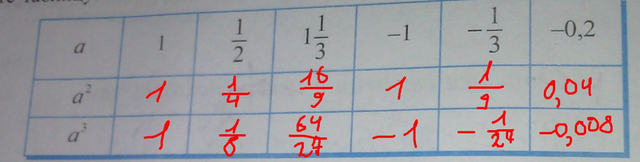 a 1 1/2 1 1/3 -1 -1/3 -0,2
a² 1 1/4 16/9 1 1/9 0,04
a³ 1 1/8 64/27 -1 -1/27 -0,008